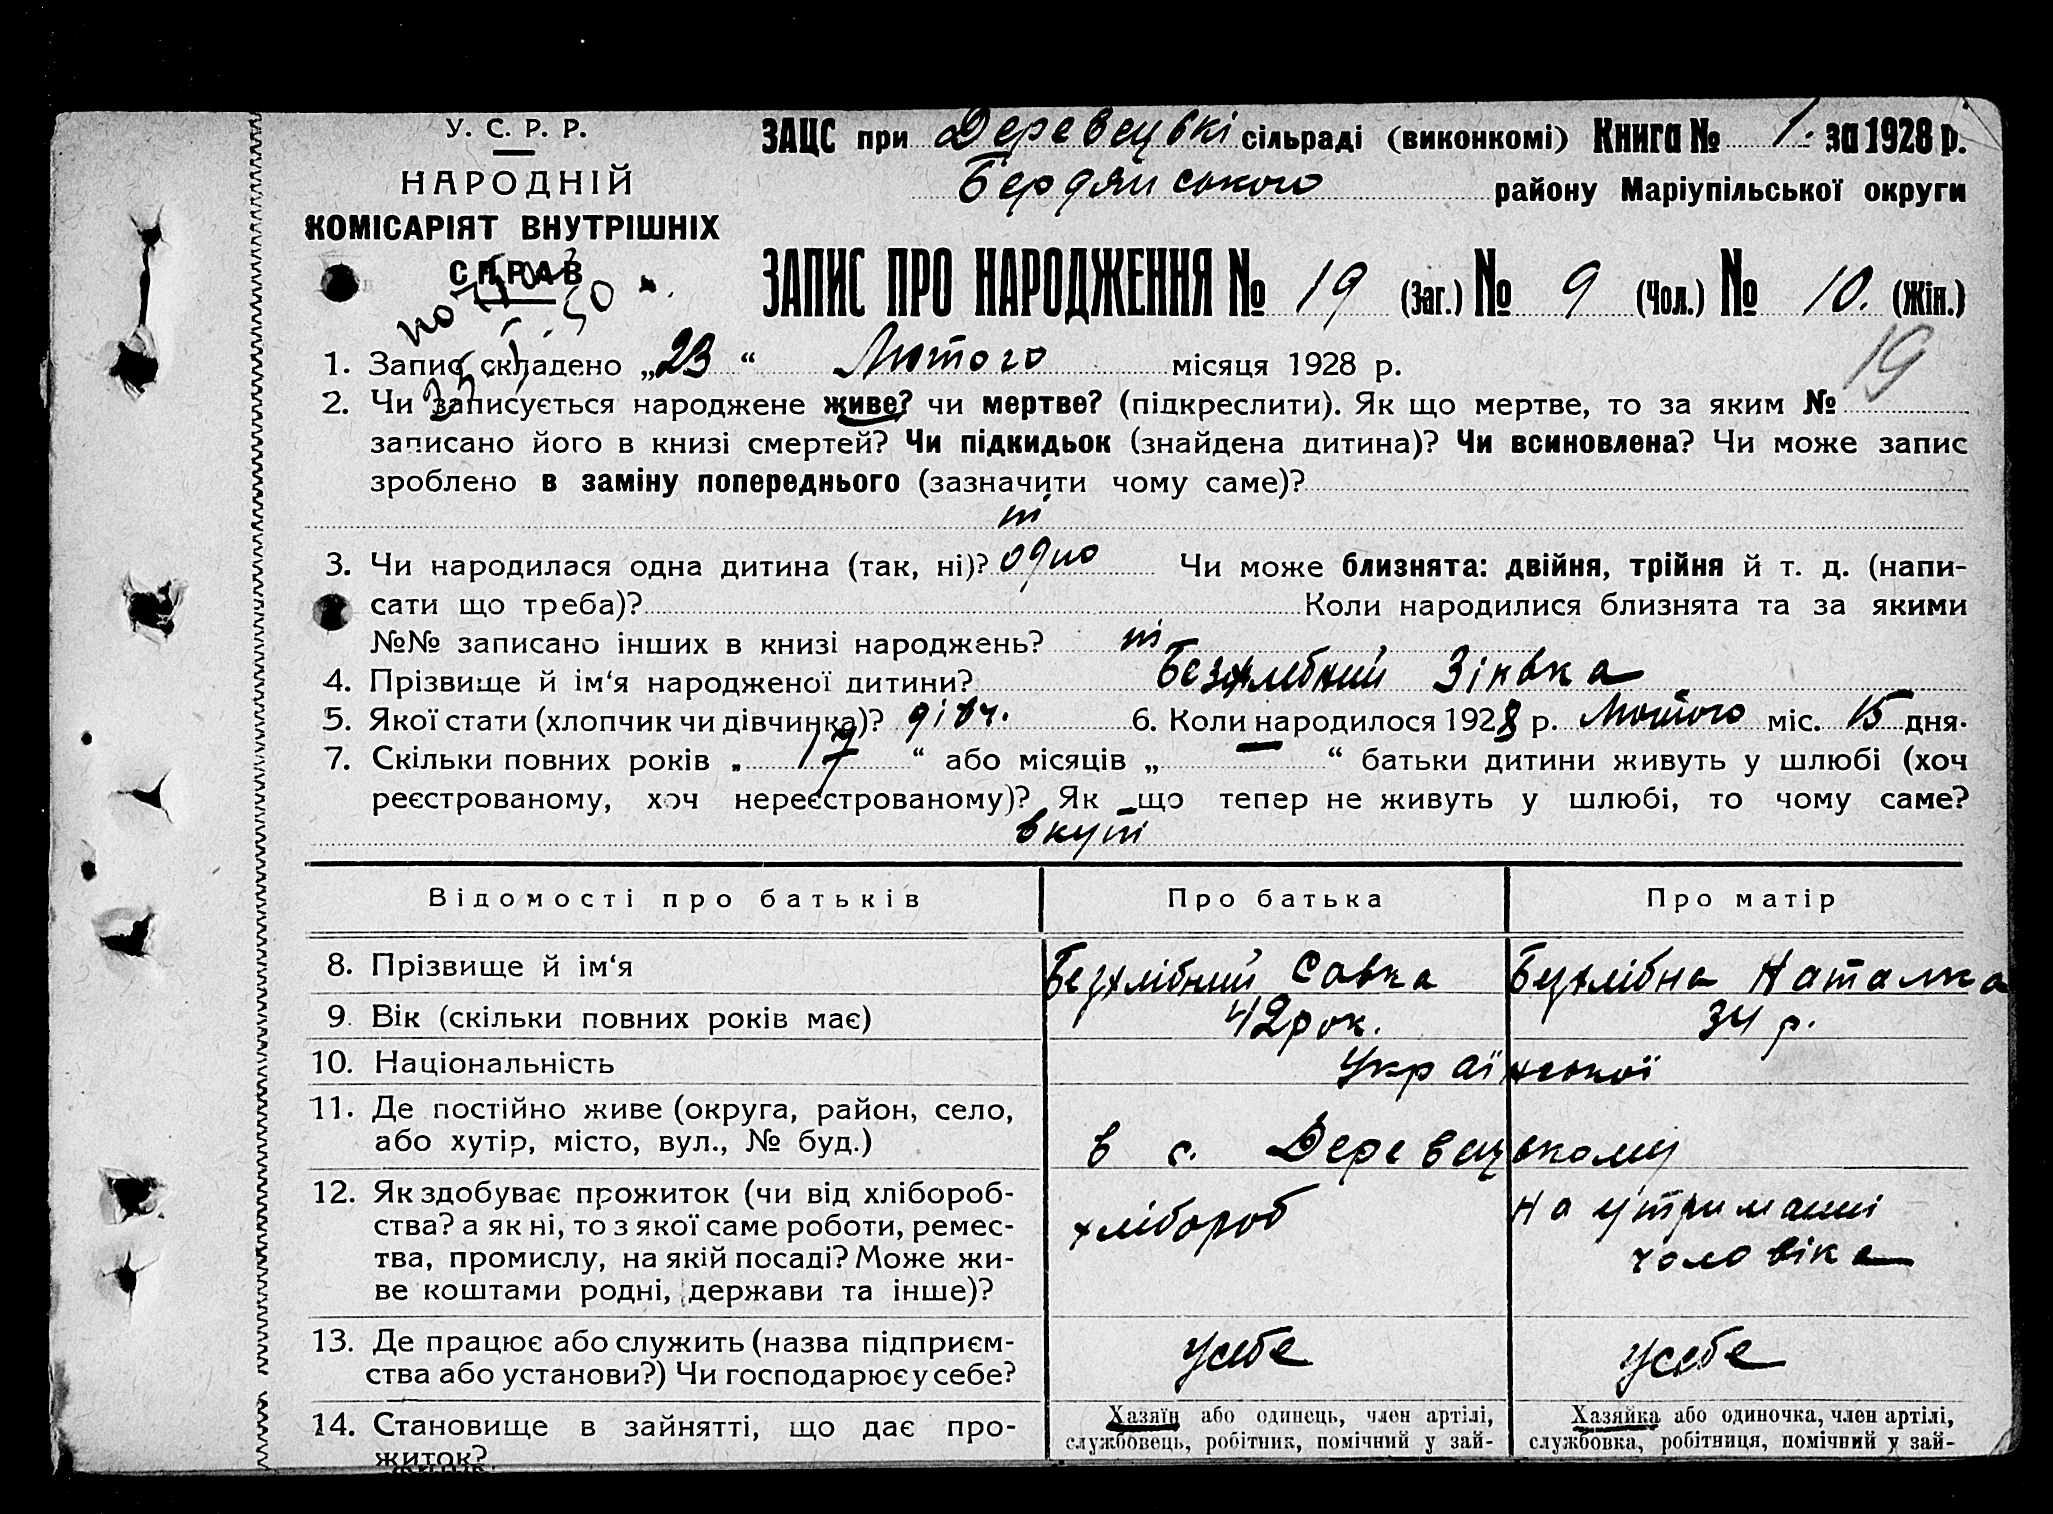 У. С. Р. Р.
НАРОДНІЙ
КОМІСАРІЯТ ВНУТРІШНІХ
СПРАВ
ЗАЦС при Деревецькі сільраді (виконкомі) Книга № 1. за 1928 р.
Бердянського району Маріупільської округи
ЗАПИС ПРО НАРОДЖЕННЯ № 19 (Заг.) № 9 (Чол.) № 10. (Жін.)
19
1. Запис складено „23“ Лютого місяця 1928 р.
2. Чи записується народжене живе? чи мертве? (підкреслити). Як що мертве, то за яким №
записано його в книзі смертей? Чи підкидьок (знайдена дитина)? Чи всиновлена? Чи може запис
зроблено в заміну попереднього (зазначити чому саме)?
ні
3. Чи народилася одна дитина (так, ні)? одно Чи може близнята: двійня, трійня й т. д. (напи-
сати що треба)? Коли народилися близнята та за якими
№№ записано інших в книзі народжень? ні
4. Прізвище й ім‘я народженої дитини? Безхлібний Зінька
5. Якої стати (хлопчик чи дівчинка)? дівч. 6. Коли народилося 1928 р. Лютого міс. 15 дня.
7. Скільки повних років „ 17 “ або місяців „ — “ батьки дитини живуть у шлюбі (хоч
реєстрованому, хоч нереєстрованому)? Як що тепер не живуть у шлюбі, то чому саме?
вкупі
Відомості про батьків Про батька Про матір
8. Прізвище й ім‘я Безхлібний Савка Безхлібна Наталка
9. Вік (скільки повних років має) 42 рок. 34 р.
10. Національність Української
11. Де постійно живе (округа, район, село,
або хутір, місто, вул., № буд.) в с. Деревецькому
12. Як здобуває прожиток (чи від хлібороб-
ства? а як ні, то з якої саме роботи, ремес-
тва, промислу, на якій посаді? Може жи-
ве коштами родні, держави та інше)?
хлібороб
на утриманні
чоловіка
13. Де працює або служить (назва підприєм-
ства або установи?) Чи господарює у себе?
усебе усебе
14. Становище в зайнятті, що дає про-
житок?
Хазяїн або одинець, член артілі,
службовець, робітник, помічний у зай-
Хазяйка або одиночка, член артілі,
службовка, робітниця, помічний у зай-